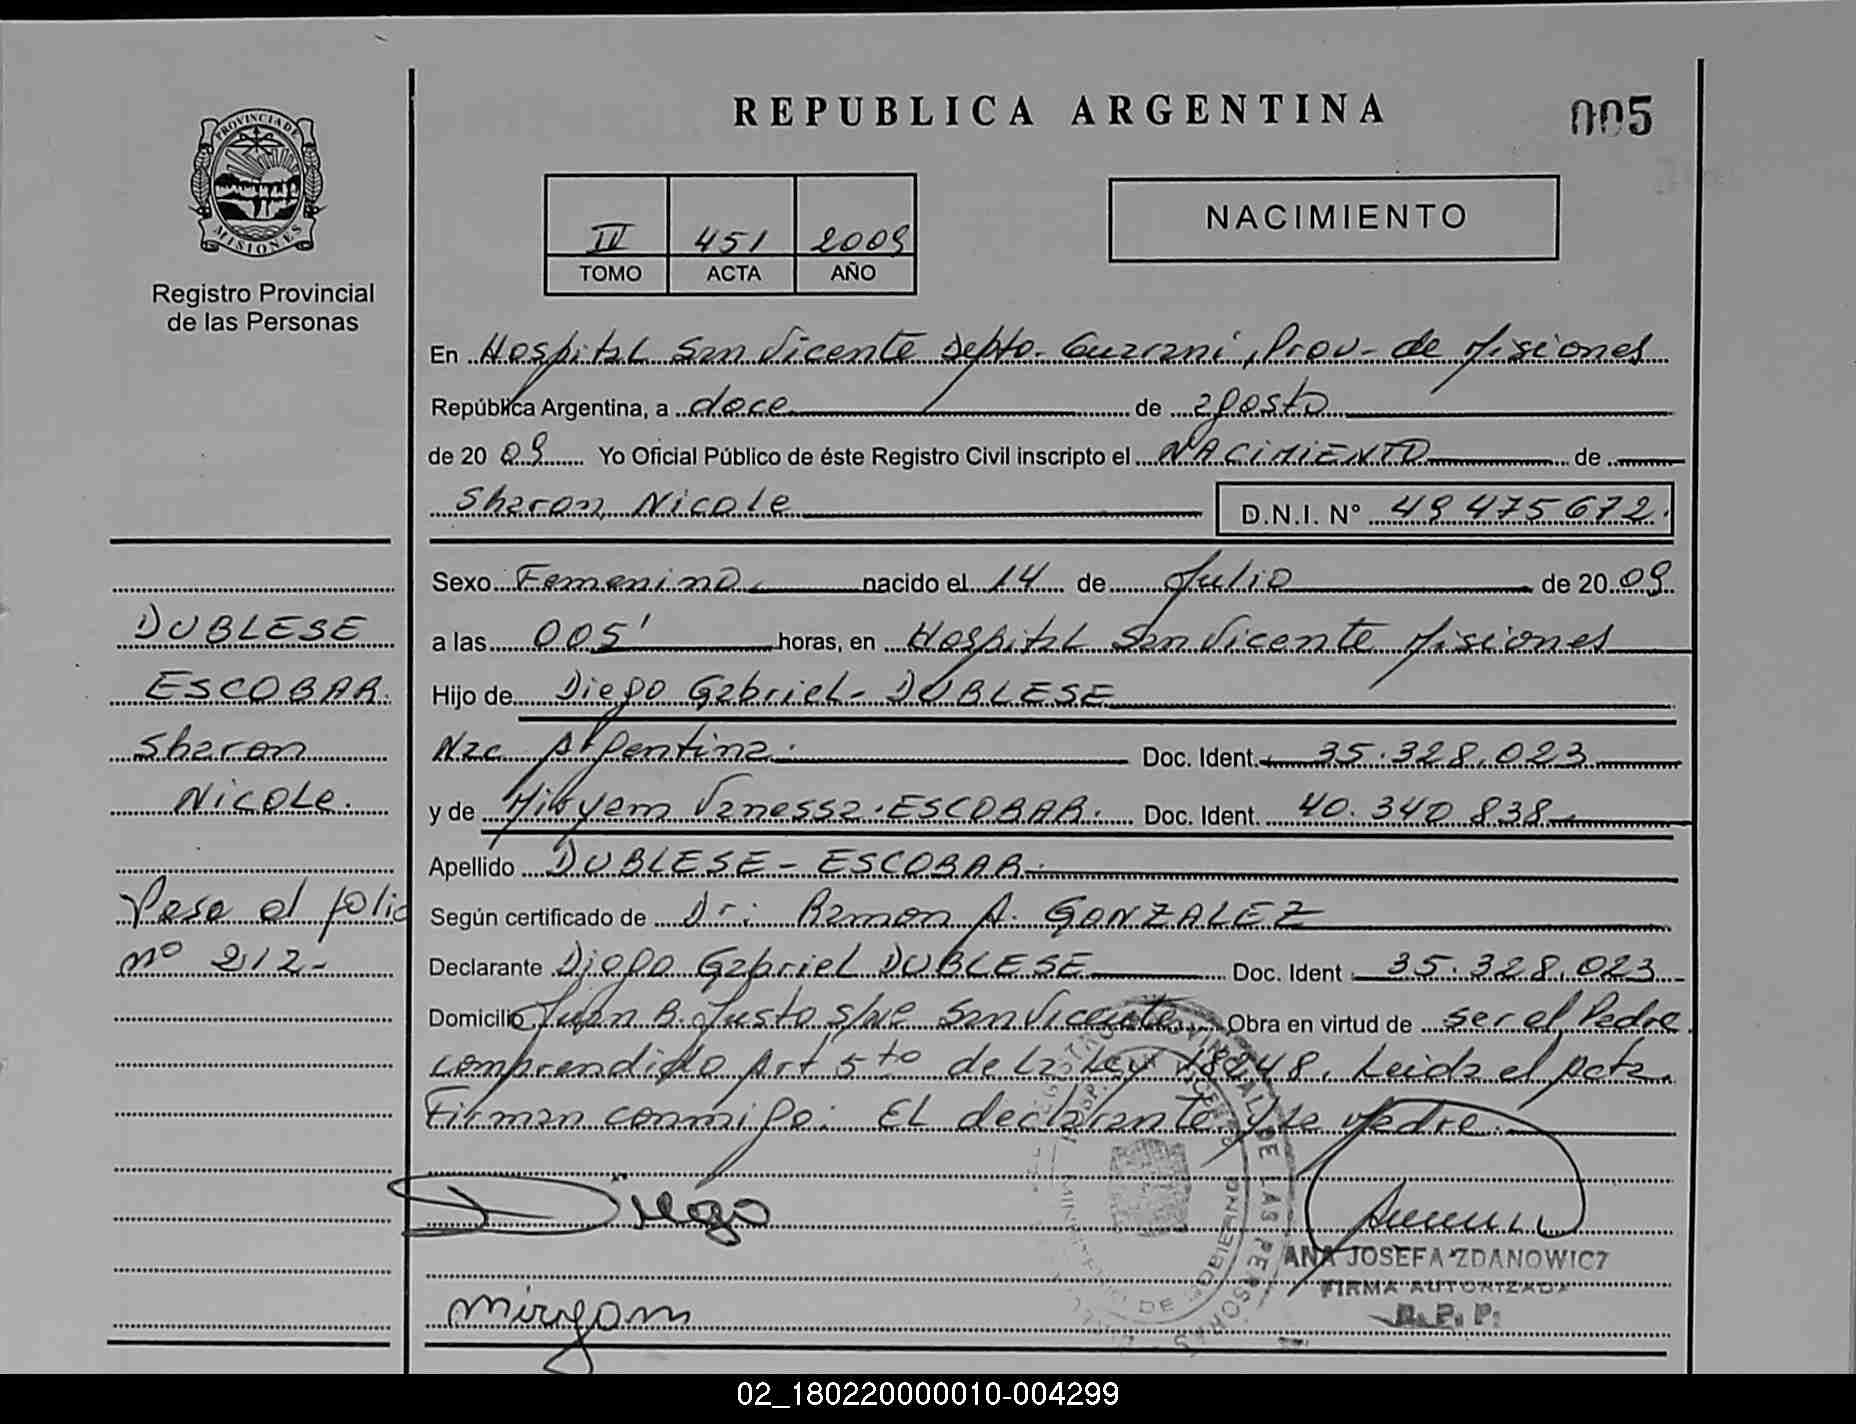 REPUBLICA ARGENTINA
005
PROVINCIA DE
MISIONES
Registro Provincial
de las Personas
451 2009
TOMO ACTA AÑO
NACIMIENTO
En Hospital San Vicente Depto. Guarani, Prov. de Misiones
República Argentina, a doce de agosto
de 20 09 Yo Oficial Público de éste Registro Civil inscripto el NACIMIENTO de
Sharon Nicole D.N.I. N° 49 475 672.
Sexo Femenino nacido el 14 de Julio de 20 09
a las 005' horas, en Hospital San Vicente Misiones
Hijo de Diego Gabriel DUBLESE
Nac. Argentina. Doc. Ident. 35.328.023
y de Vanessa ESCOBAR. Doc. Ident. 40.340 838
Apellido DUBLESE - ESCOBAR.
Según certificado de Dr: Ramon A. GONZALEZ
Declarante Diego Gabriel DUBLESE Doc. Ident 35.328.023
Domicilio Juan B. Justo S/Nº San Vicente Obra en virtud de ser el Padre
comprendido Art 5to de la Ley 18248. Leida el acta
Firman conmigo: El declarante y la Madre.
DUBLESE
ESCOBAR.
Sharon
Nicole.
Pasa al folio
nº 212-
Diego
miryam
ANA JOSEFA ZDANOWICZ
FIRMA AUTORIZADA
R.P.P.
02_180220000010-004299